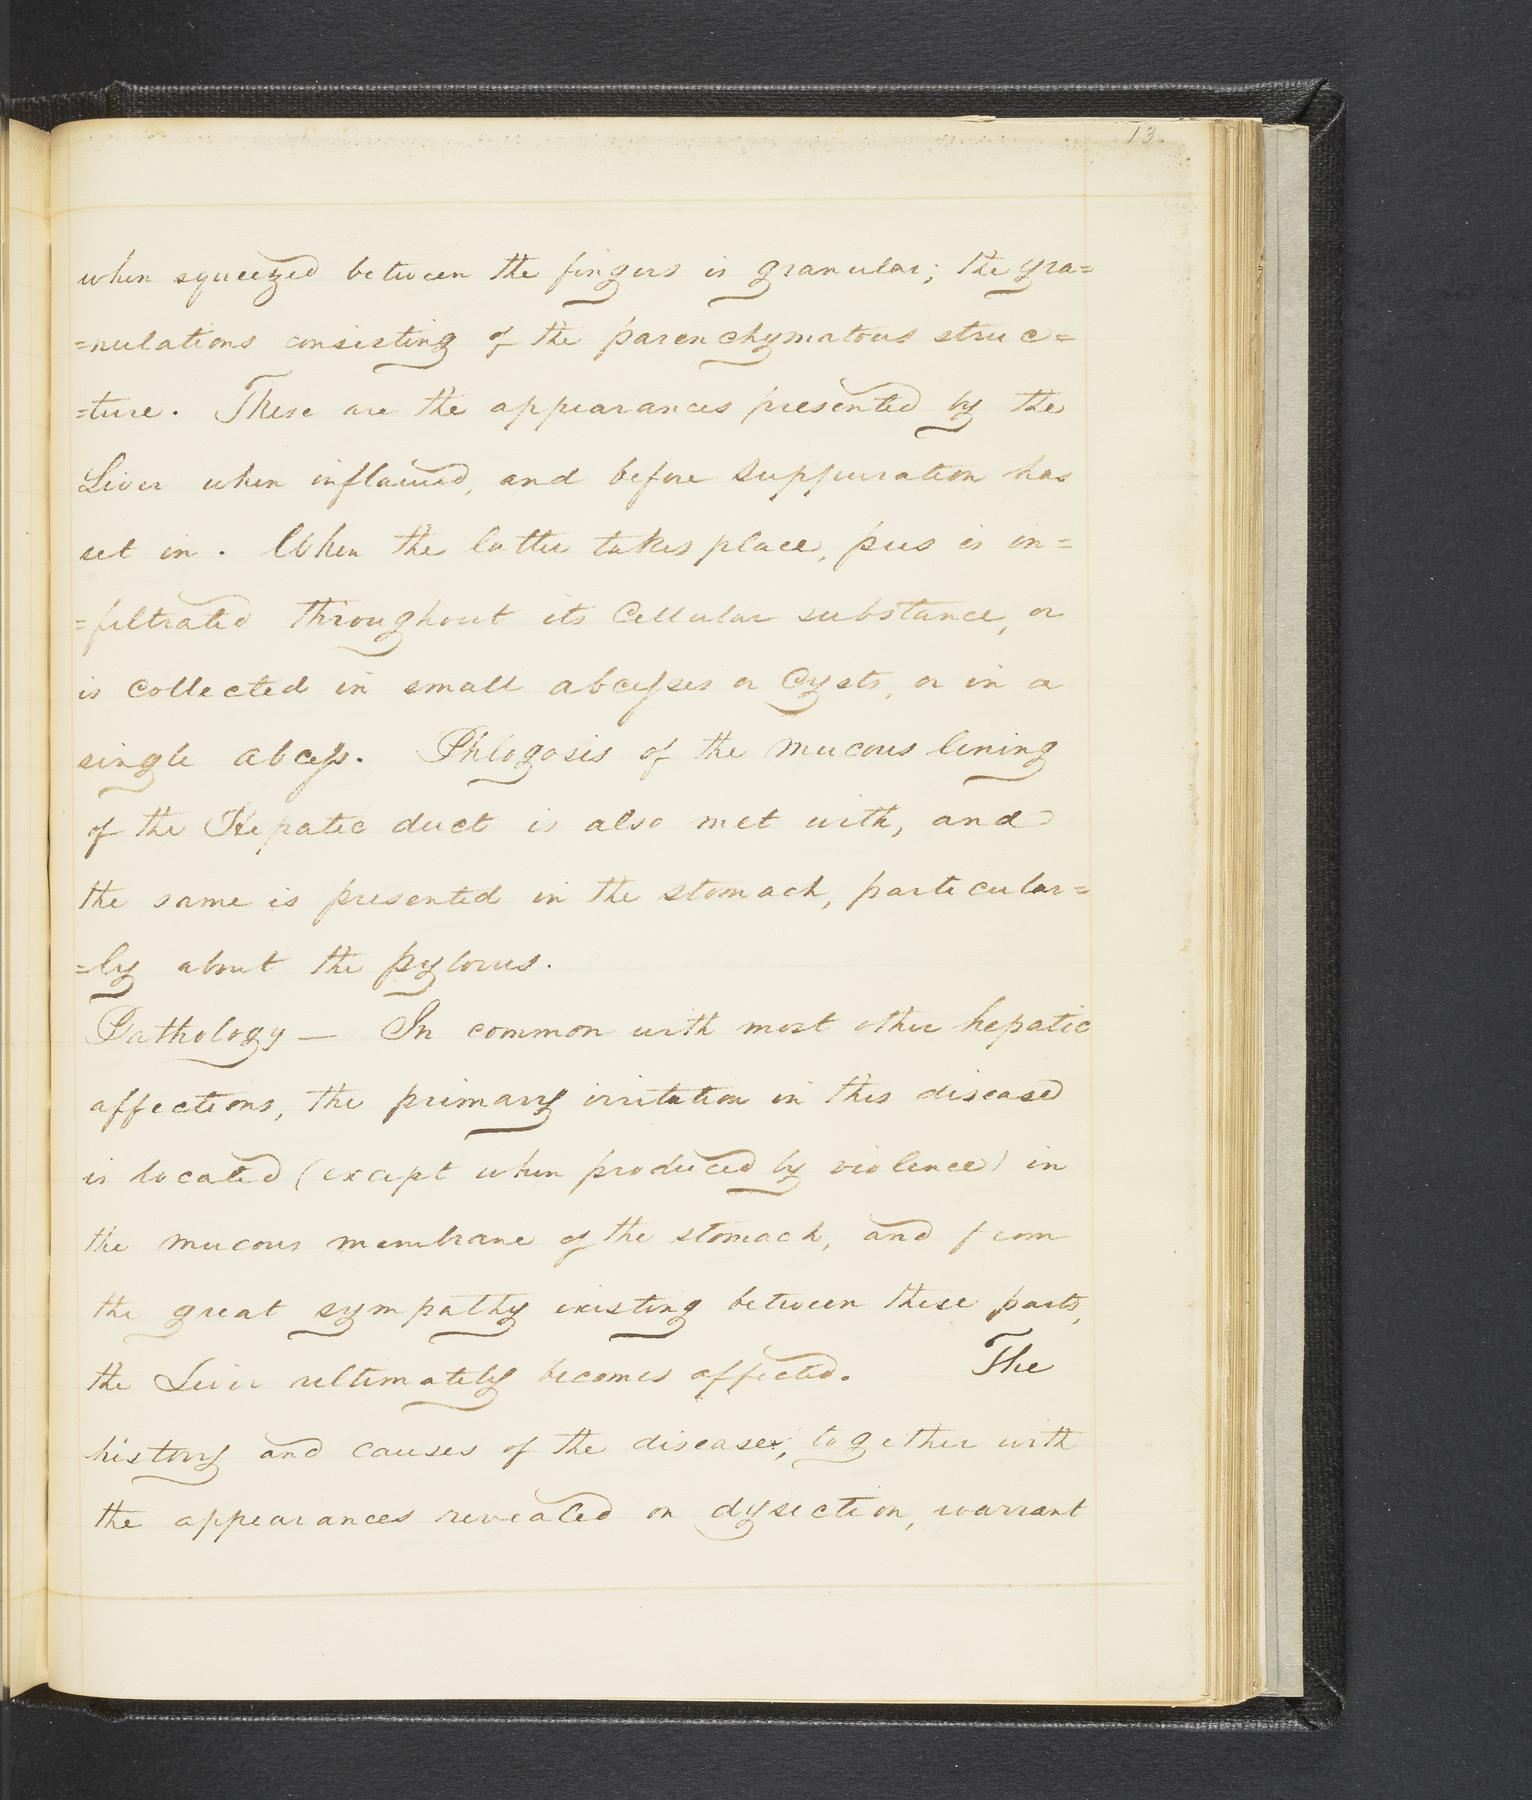 13
when squeezed between the fingers is granular; the gra=
=nulations consisting of the parenchymatous struc=
=ture. These are the appearances presented by the
Liver when inflamed, and before suppuration has
set in. When the latter takes place, pus is in=
=filtrated throughout its Cellular substance, or
is collected in small abcesses or Cysts, or in a
single abcess. Phlogosis of the mucous lining
of the Hepatic duct is also met with, and
the same is presented in the stomach, particular=
=ly about the pylorus.
Pathology — In common with most other hepatic
affections, the primary irritation in this disease
is located (except when produced by violence) in
the mucous membrane of the stomach, and from
the great sympathy existing between these parts,
the Liver ultimately becomes affected. The
history and causes of the disease, together with
the appearances revealed on dysection, warrant